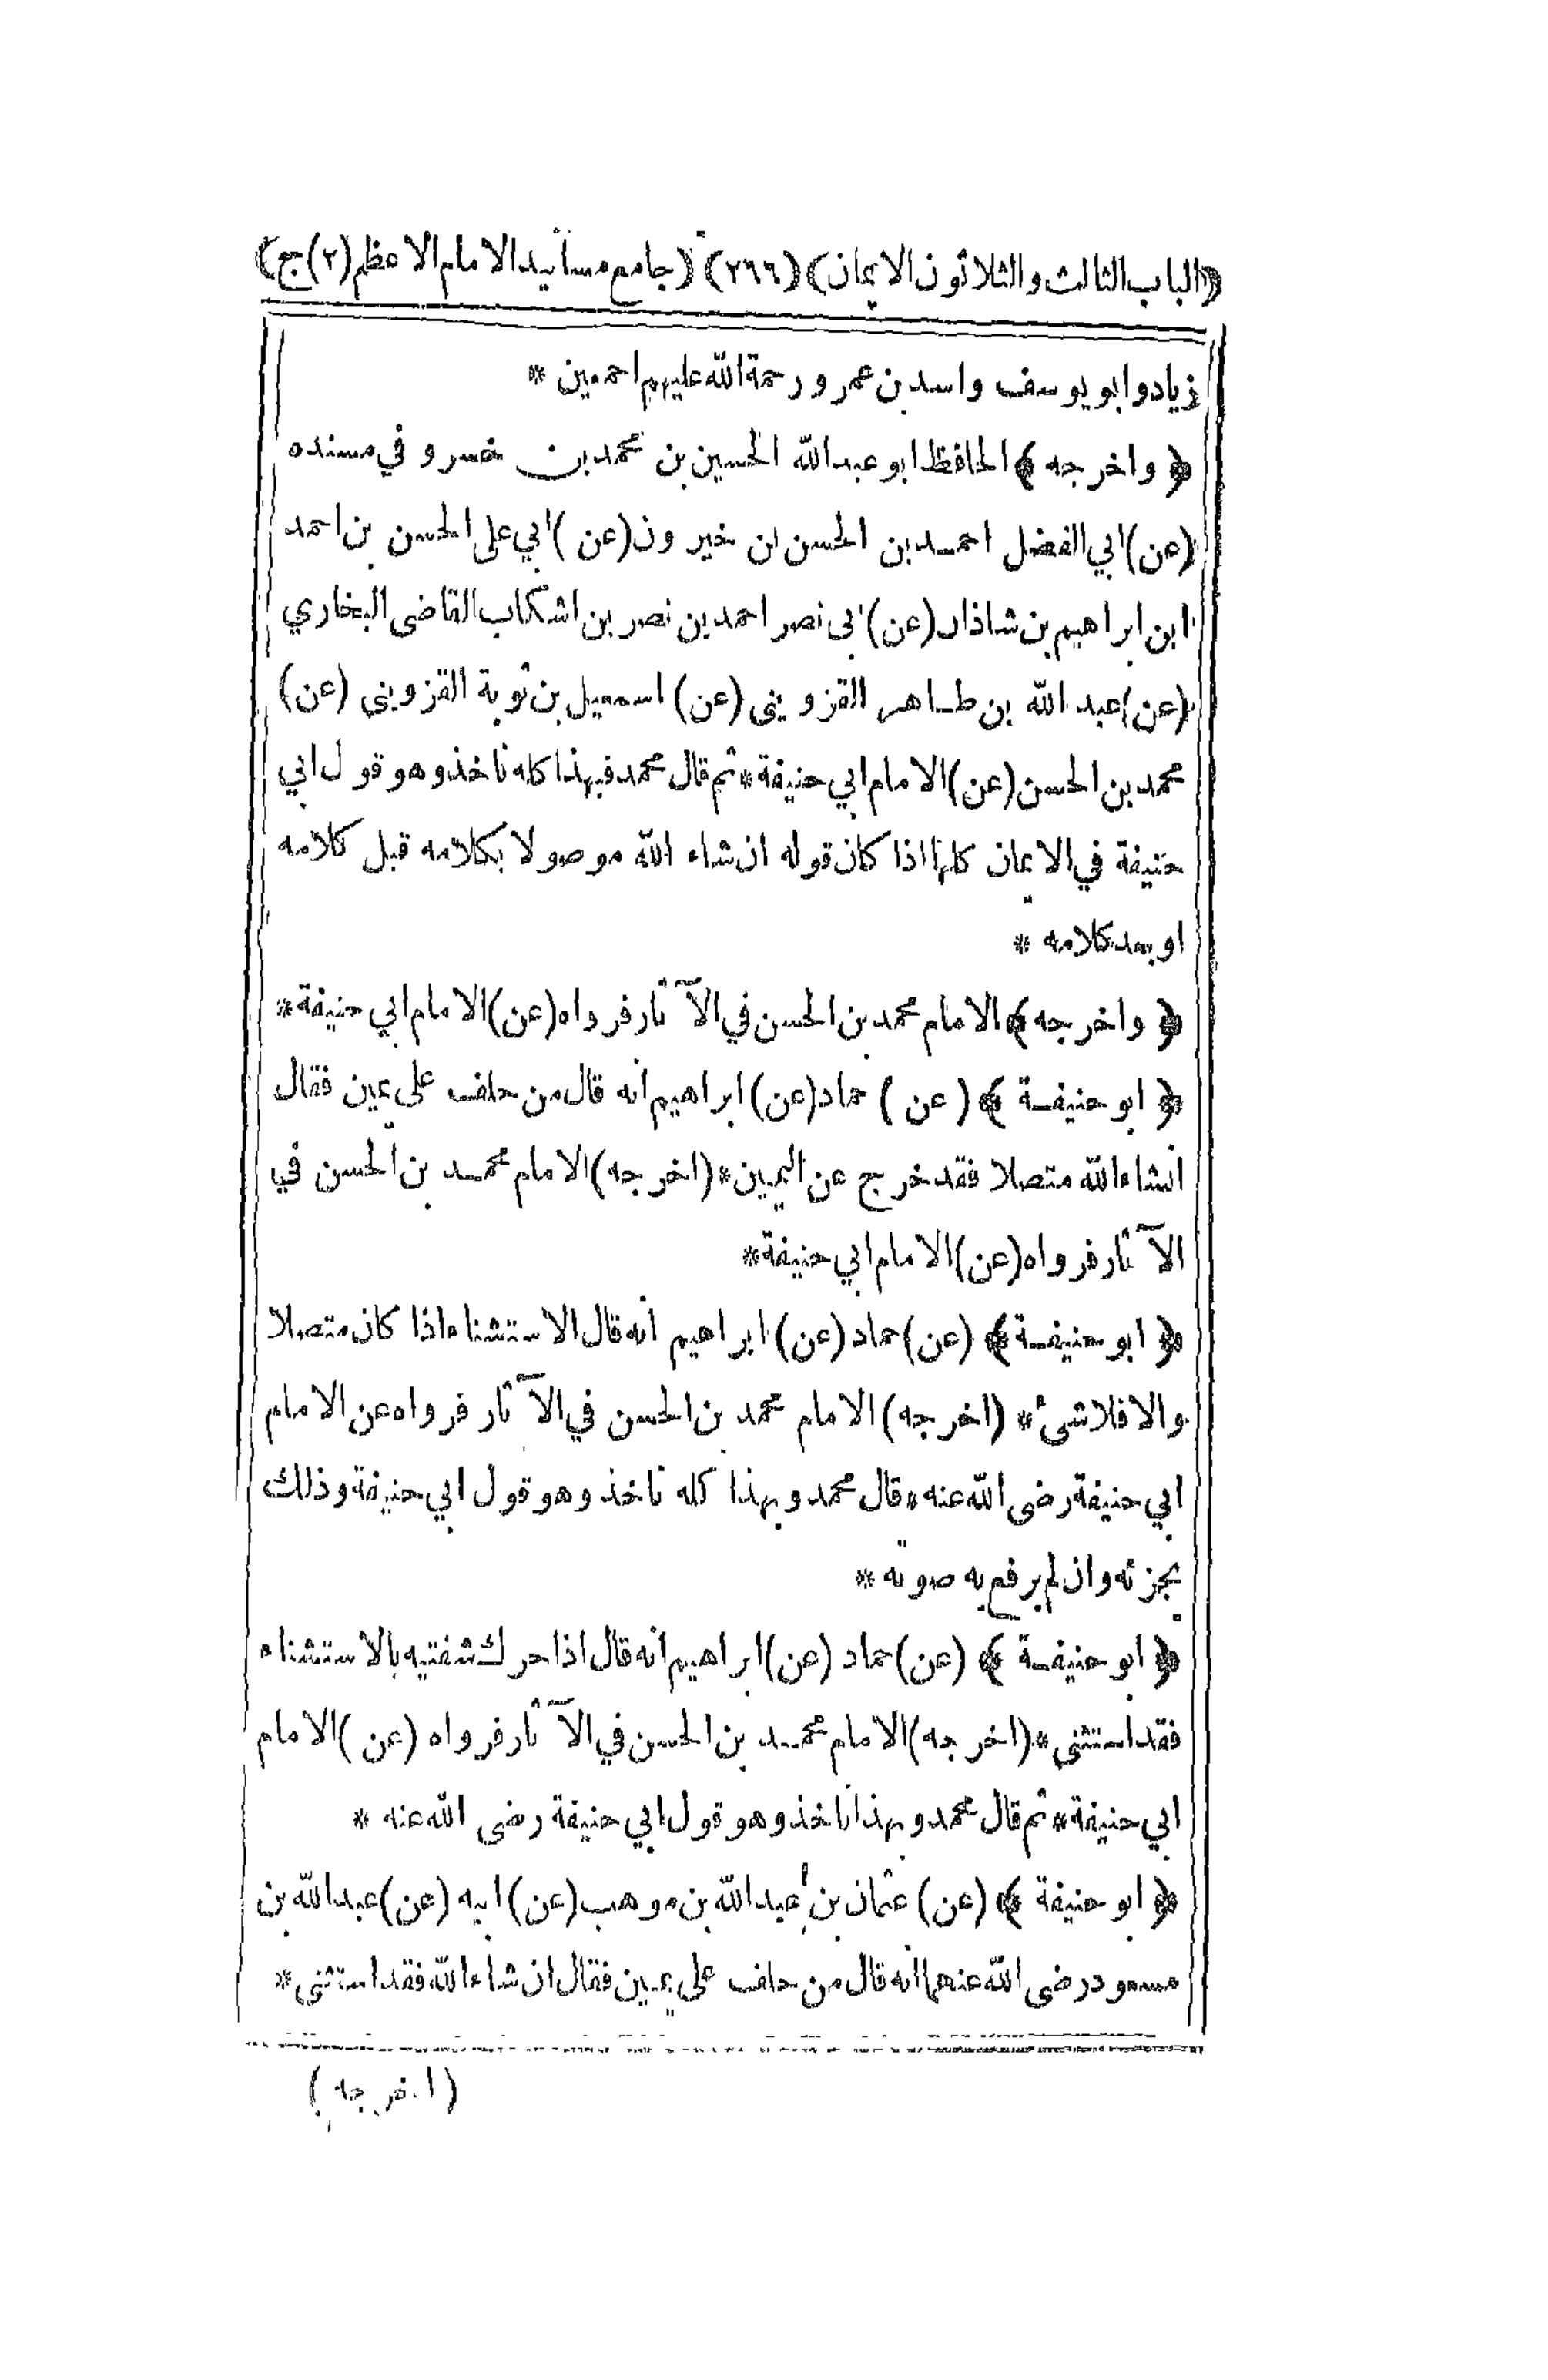 ﴿الباب الثالث والثلاثون الايمان﴾ (٢٦٦) (جامع مسانيد الامام الاعظم (٢) ج﴾
زياد وابو يوسف واسد بن عمرو رحمة الله عليهم اجمعين *
﴿ واخرجه ﴾ الحافظ ابو عبد الله الحسين بن محمد بن خسرو في مسنده
(عن) ابي الفضل احمد بن الحسن بن خيرون (عن) ابي على الحسن بن احمد
ابن ابراهيم بن شاذان (عن) ابى نصر احمد بن نصر بن اشكاب القاضى البخاري
(عن) عبد الله بن طاهر القزوينى (عن) اسمعيل بن توبة القزوينى (عن)
محمد بن الحسن (عن) الامام ابي حنيفة * ثم قال محمد فبهذا كله ناخذ وهو قول ابي
حنيفة في الايمان كلها اذا كان قوله ان شاء الله موصولا بكلامه قبل كلامه
او بعد كلامه *
﴿ واخرجه ﴾ الامام محمد بن الحسن في الآثار فرواه (عن) الامام ابي حنيفة *
﴿ ابو حنيفة ﴾ (عن) حماد (عن) ابراهيم انه قال من حلف على يمين فقال
انشاء الله متصلا فقد خرج عن اليمين * (اخرجه) الامام محمد بن الحسن في
الآثار فرواه (عن) الامام ابي حنيفة *
﴿ ابو حنيفة ﴾ (عن) حماد (عن) ابراهيم انه قال الاستثناء اذا كان متصلا
والا فلا شئ * (اخرجه) الامام محمد بن الحسن في الآثار فرواه عن الامام
ابي حنيفة رضى الله عنه * قال محمد وبهذا كله ناخذ وهو قول ابي حنيفة وذلك
يجزئه وان لم يرفع به صوته *
﴿ ابو حنيفة ﴾ (عن) حماد (عن) ابراهيم انه قال اذا حرك شفتيه بالاستثناء
فقد استثنى * (اخرجه) الامام محمد بن الحسن في الآثار فرواه (عن) الامام
ابي حنيفة * ثم قال محمد وبهذا ناخذ وهو قول ابي حنيفة رضى الله عنه *
﴿ ابو حنيفة ﴾ (عن) عثمان بن عبد الله بن موهب (عن) ابيه (عن) عبد الله بن
مسعود رضى الله عنهما انه قال من حلف على يمين فقال ان شاء الله فقد استثنى *
(اخرجه)